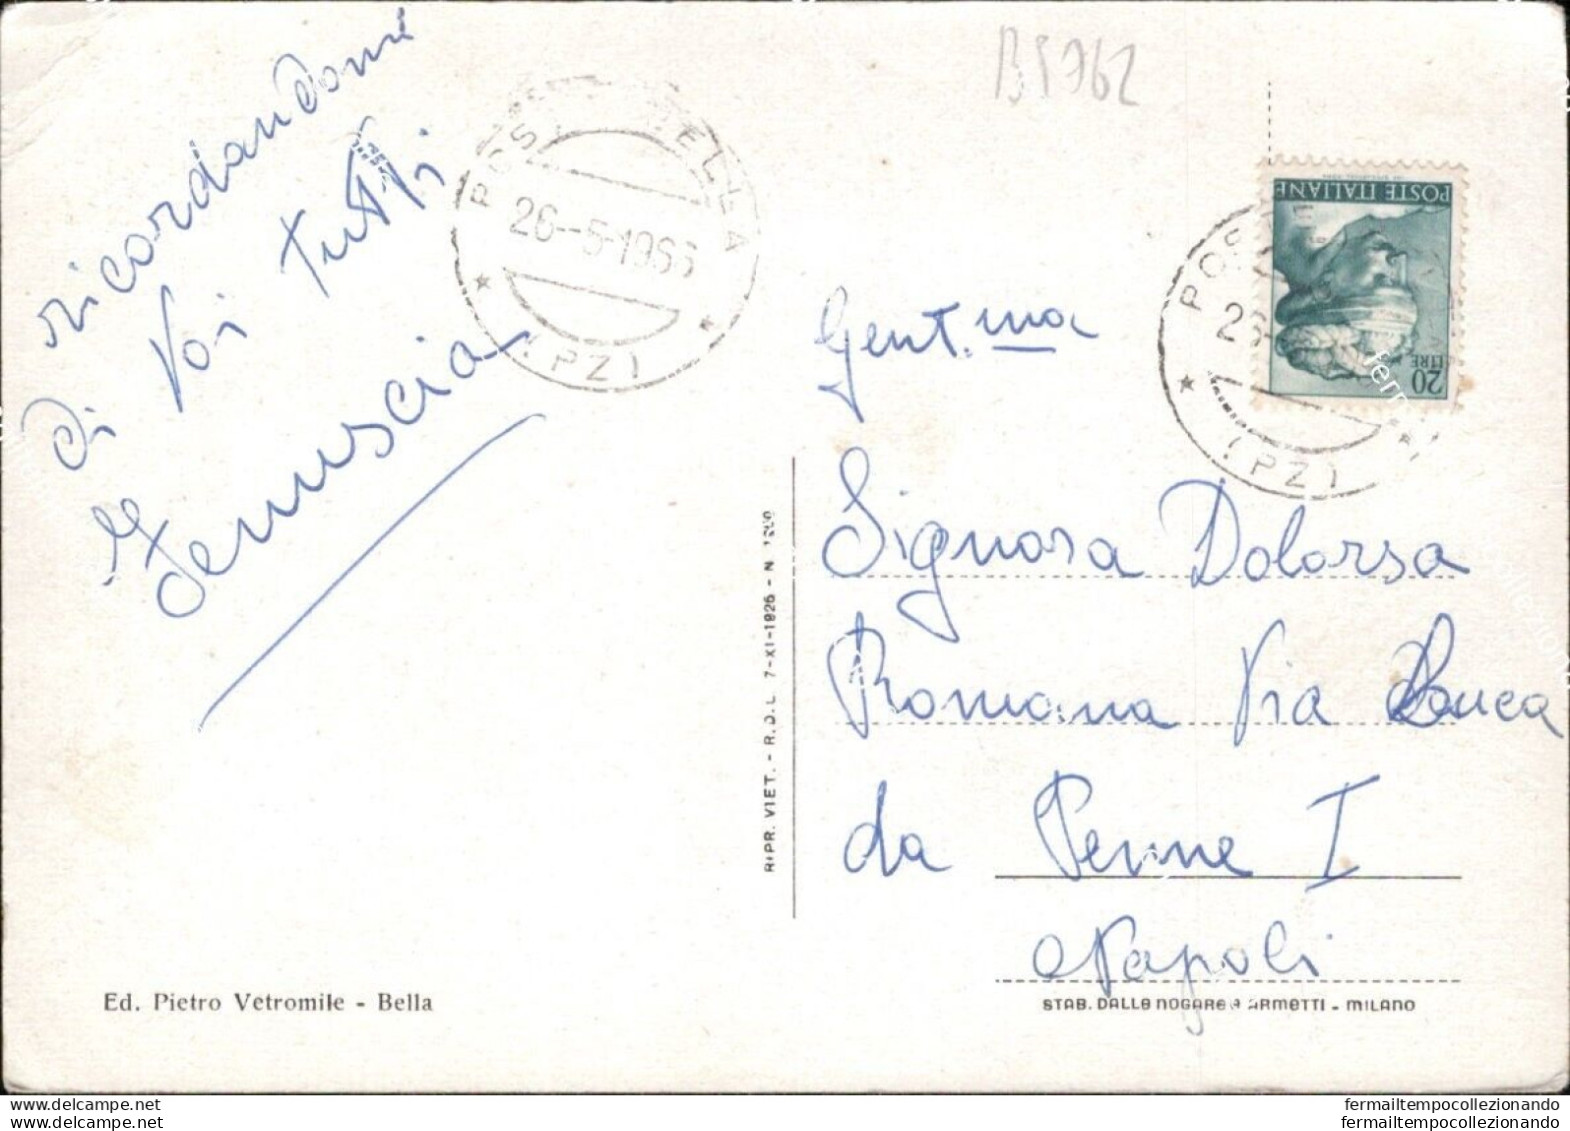 ricordandomi
di Voi tutti
Jenuscia
B5762
POSTE BELLA
26-5-1966
(PZ)
POSTE ITALIANE
LIRE 20
POS
26
(PZ)
Gent.ma
Signora Dolorsa
Romana Via Luca
da Penne I
Napoli
RIPR. VIET. - R.D.L. 7-XI-1926 - N.
Ed. Pietro Vetromile - Bella
STAB. DALLE NOGARE E ARMETTI - MILANO
www.delcampe.net
fermailtempocollezionando
www.delcampe.net
fermailtempocollezionando